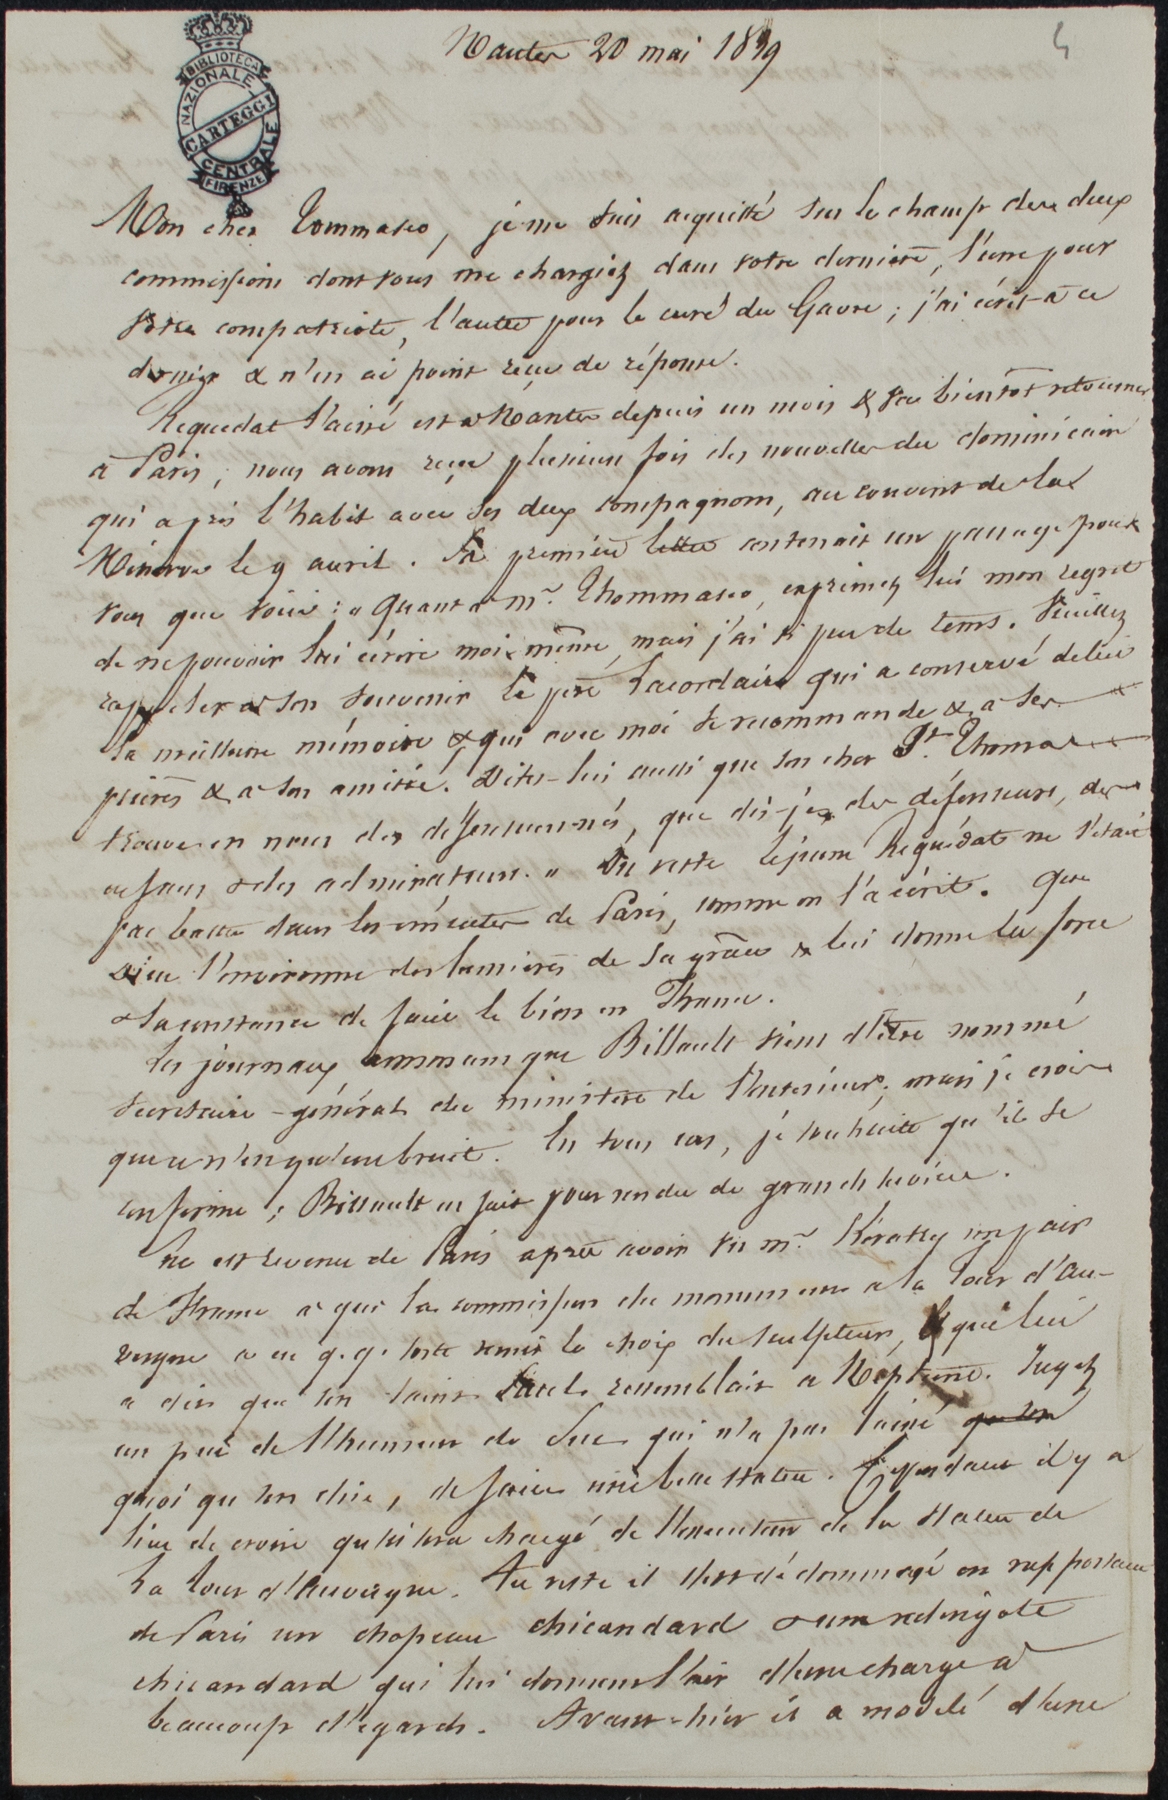 Nantes 20 mai 1839
4
BIBLIOTECA
NAZIONALE
CARTEGGI
CENTRALE
FIRENZE
Mon cher Tommaseo, je me suis acquitté sur le champ des deux
commissions dont vous me chargiez dans votre dernière, l'une pour
votre compatriote, l'autre pour le curé du Gavre; j'ai écrit à ce
dernier & n'en ai point reçu de réponse.
Requedat l'aîné est à Nantes depuis un mois & va bientôt retourner
à Paris; nous avons reçu plusieurs fois des nouvelles du dominicain
qui a pris l'habit avec ses deux compagnons, au couvent de la
Minerve le 9 avril. Sa première lettre contenait un passage pour
vous que voici: « Quant à Mr. Thommaseo, exprimez lui mon regret
de ne pouvoir lui écrire moi-même, mais j'ai si peu de tems. Veuillez
rappeler à son souvenir le père Lacordaire qui a conservé de lui
la meilleure mémoire & qui avec moi se recommande & à ses
prières & à son amitié. Dites-lui aussi que son cher St. Thomas
trouve en nous des défenseurs-nés, que dis-je, des défenseurs, des
enfans & des admirateurs. » Du reste le jeune Requédat ne s'était
pas battu dans les émeutes de Paris, comme on l'a écrit. Que
Dieu l'environne des lumières de sa grâce & lui donne la force
& la constance de faire le bien en France.
Les journaux annoncent que Billault vient d'être nommé
secrétaire-général du ministère de l'intérieur; mais je crois
que ce n'est qu'un bruit. En tous cas, je souhaite qu'il se
confirme; Billault en fait pour rendre de grands services.
Suc est revenu de Paris après avoir vu Mr. Kératry pair
de France à qui la commission du monument à la Tour d'Au-
vergne a en q.q. sorte remis le choix du sculpteur, & qui lui
a dit que son saint ressemblait à Neptune. Jugez
un peu de l'humeur de Suc qui n'a pas laissé
quoi qu'on dise, de faire une belle statue. Cependant il y a
lieu de croire qu'il sera chargé de l'exécution de la statue de
La Tour d'Auvergne. Au reste il s'est dédommagé en rapportant
de Paris un chapeau chicandard & une redingote
chicandard qui lui donnent l'air d'une charge à
beaucoup d'égards. Avant-hier il a modelé d'une